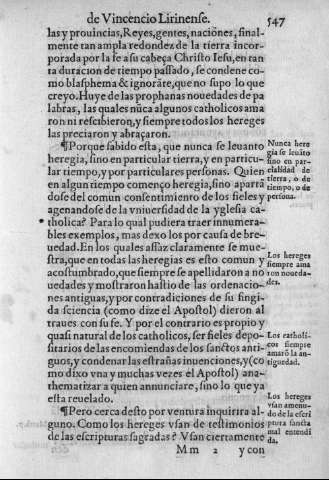 de Vincencio Lirinense. 547
las y prouincias, Reyes, gentes, naciões, final-
mente tan ampla redondez de la tierra incor-
porada por la fe a su cabeça Christo Iesu, en tan
ta duracion de tiempo passado, se condene co-
mo blasphema & ignorãte, que no supo lo que
creyo. Huye de las prophanas nouedades de pa
labras, las quales nũca algunos catholicos ama
ron ni rescibieron, y siempre todos los hereges
las preciaron y abraçaron.
¶Porque sabido esta, que nunca se leuanto
heregia, sino en particular tierra, y en particu-
lar tiempo, y por particulares personas. Quien
en algun tiempo començo heregia, sino apartã
dose del comun consentimiento de los fieles y
agenandose de la vniuersidad de la yglesia ca-
tholica? Para lo qual pudiera traer innumera-
bles exemplos, mas dexo los por causa de bre-
uedad. En los quales assaz claramente se mue-
stra, que en todas las heregias es esto comun y
acostumbrado, que siempre se apellidaron a no
uedades y mostraron hastio de las ordenacio-
nes antiguas, y por contradiciones de su fingi-
da sciencia (como dize el Apostol) dieron al
traues con su fe. Y por el contrario es propio y
quasi natural de los catholicos, ser fieles depo-
sitarios de las encomiendas de los sanctos anti-
guos, y condenar las estrañas inuenciones, y (co
mo dixo vna y muchas vezes el Apostol) ana-
thematizar a quien annunciare, sino lo que ya
esta reuelado.
¶Pero cerca desto por ventura inquirira al-
guno. Como los hereges vsan de testimonios
de las escripturas sagradas? Vsan ciertamente
M m 2 y con
Nunca here
gia se leuãto
sino en par-
cialidad de
tierra, o de
tiempo, o de
persona.
Los hereges
siempre ama
ron noueda-
des.
Los catholi-
cos siempre
amarõ la an-
tiguedad.
Los hereges
vsan amenu-
do de la escri
ptura sancta
mal entendi
da.